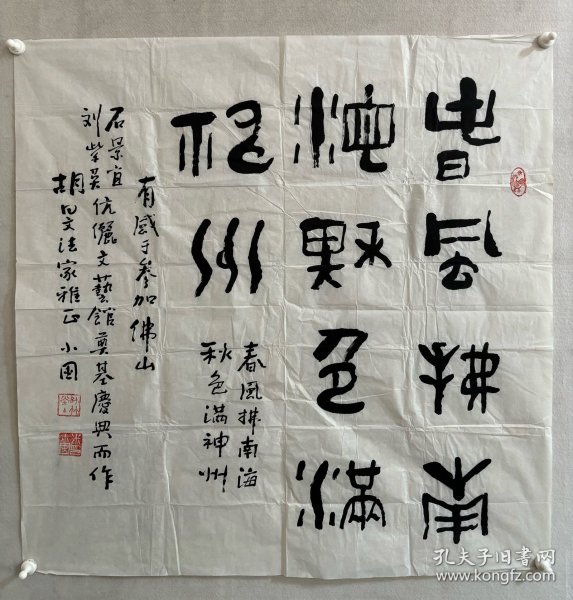 春风拂南
海秋色满
神州
春风拂南海
秋色满神州
有感于参加佛山
石景宜
刘紫英伉儷文藝館奠基慶典而作
胡曰文法家雅正 小國
孔夫子旧书网
www.kongfz.com